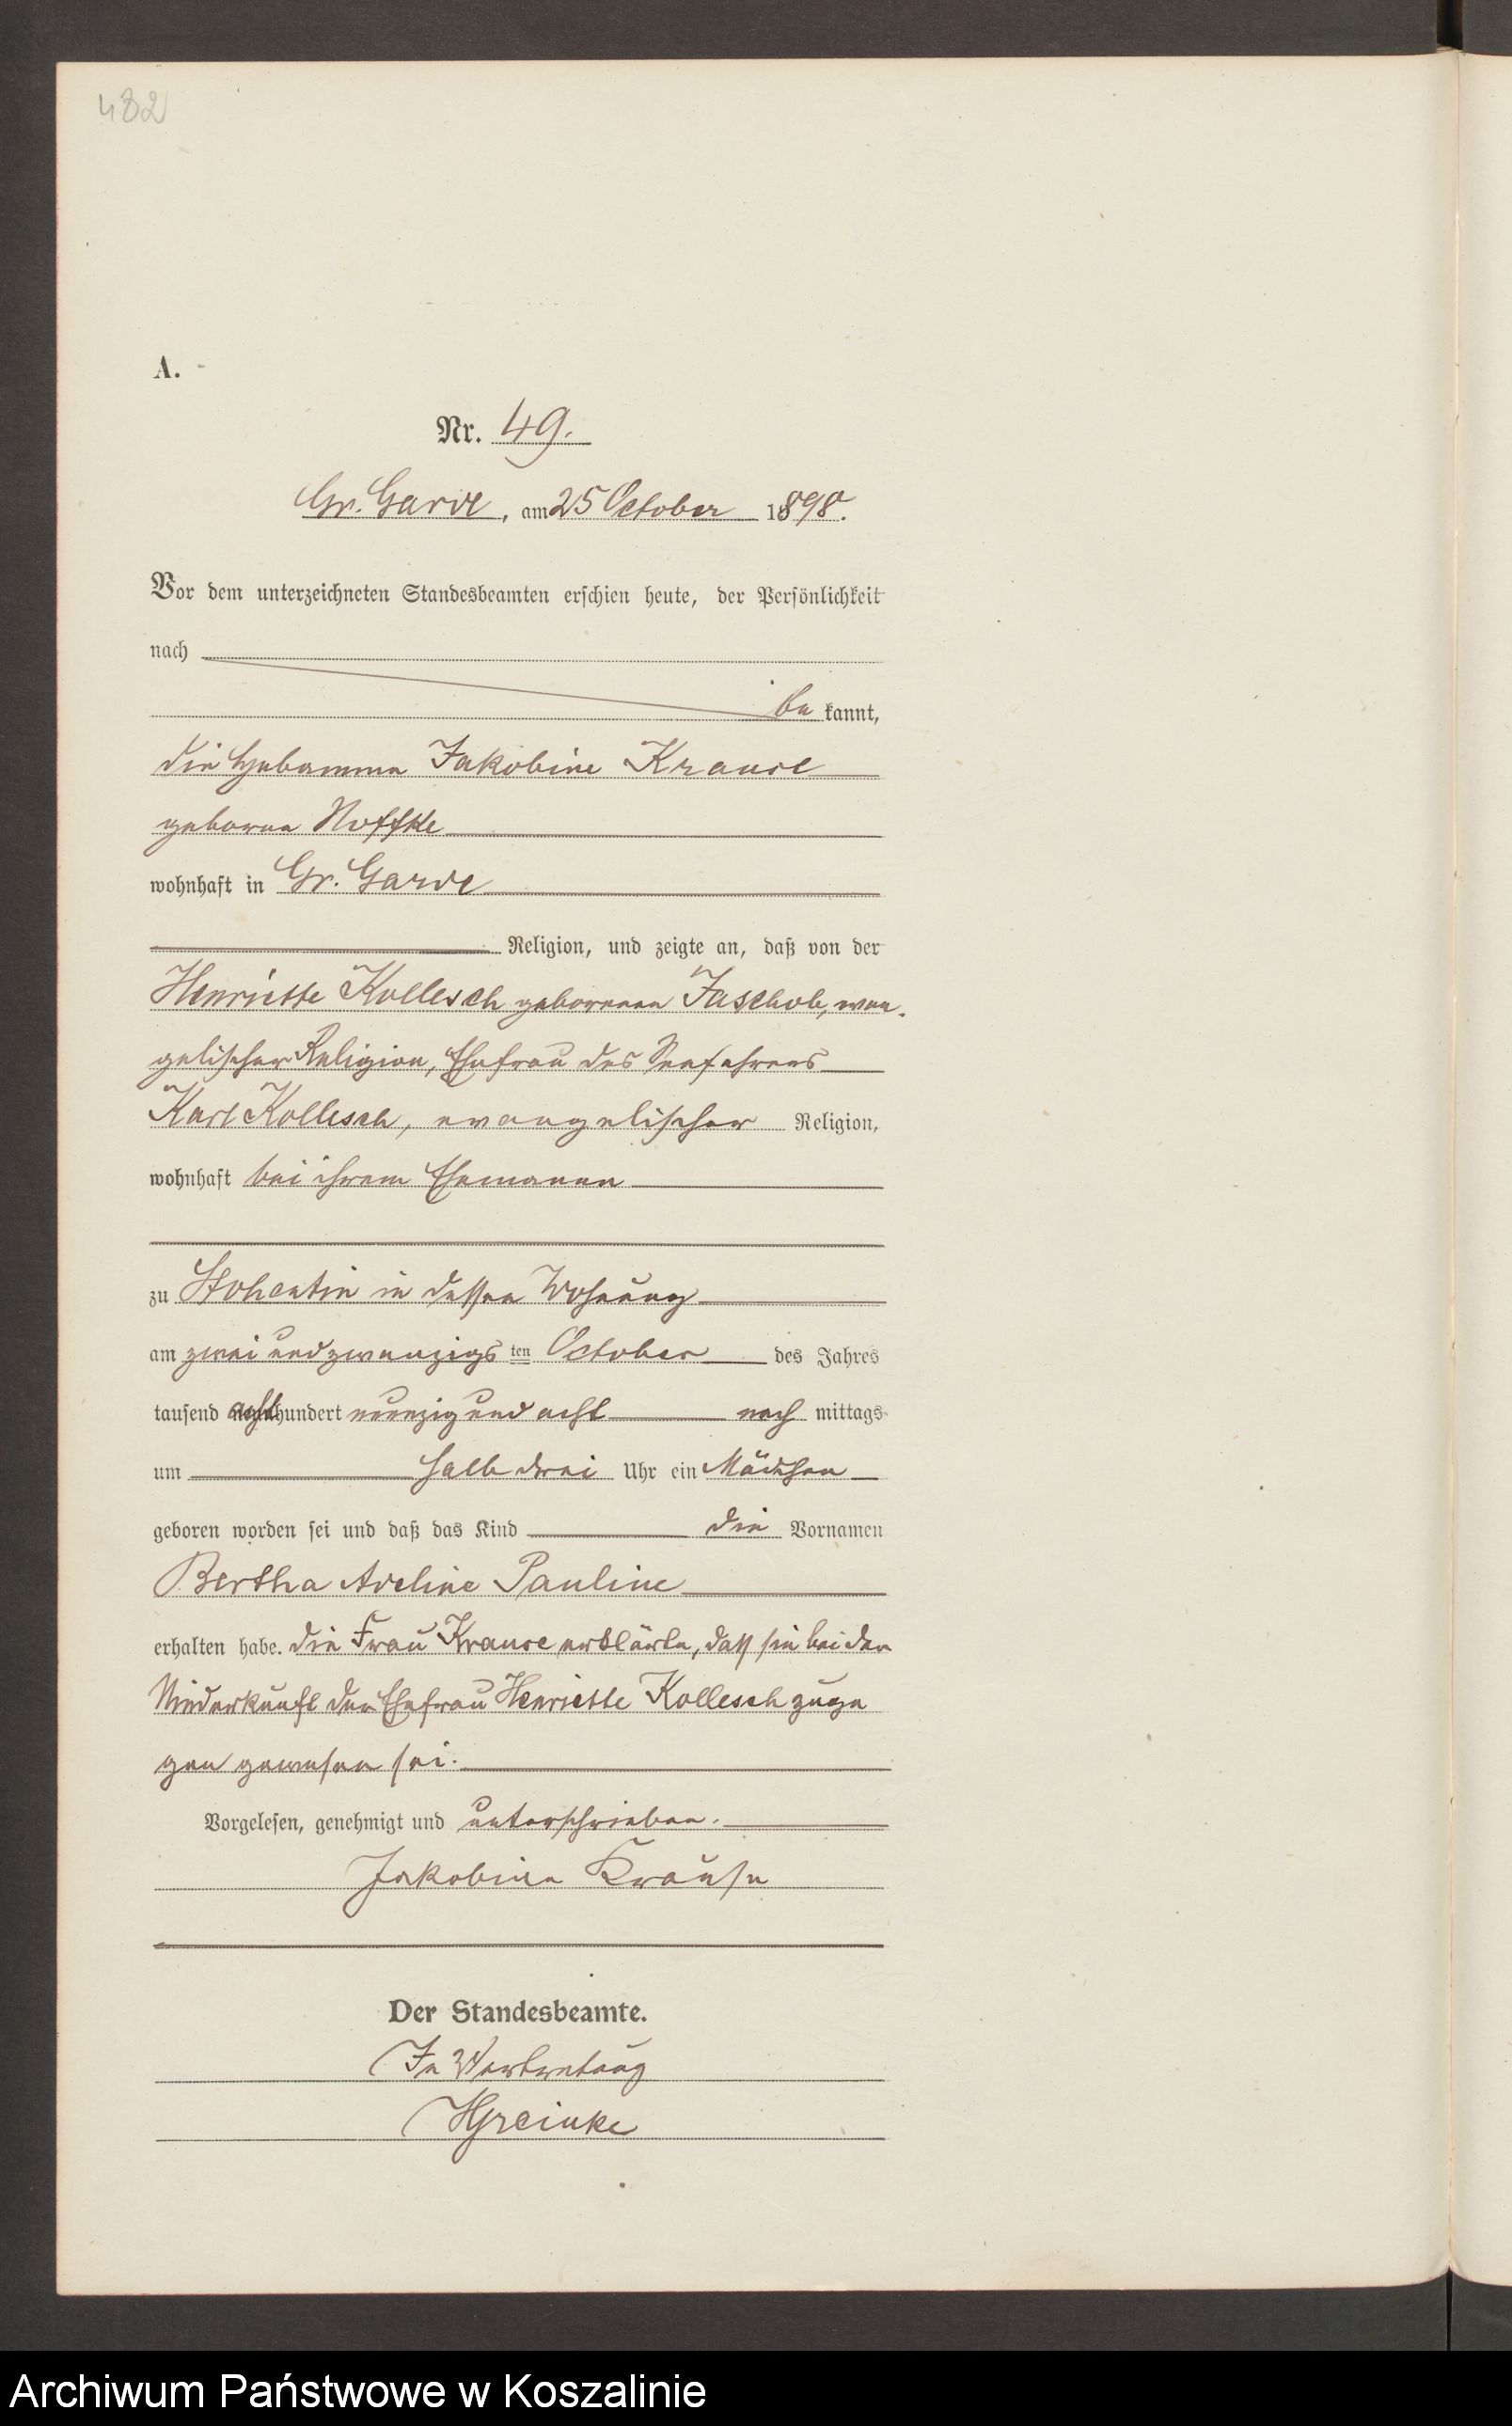 482
A.
Nr. 49.
Gr. Garde, am 25 October 1898.
Vor dem unterzeichneten Standesbeamten erschien heute, der Persönlichkeit
nach
be kannt,
die Hebamme Jakobine Krause
geborene Noffke
wohnhaft in Gr. Garde
Religion, und zeigte an, daß von der
Henriette Kollesch geborenen Jaschob, evan-
gelischer Religion, Ehefrau des Seefahrers
Karl Kollesch, evangelischer Religion,
wohnhaft bei ihrem Ehemanne
zu Stohentin in dessen Wohnung
am zwei und zwanzigs ten October des Jahres
tausend acht hundert neunzig und acht nach mittags
um halb drei Uhr ein Mädchen
geboren worden sei und daß das Kind die Vornamen
Bertha Aveline Pauline
erhalten habe. Die Frau Krause erklärte, daß sie bei der
Niederkunft der Ehefrau Henriette Kollesch zuge
gen gewesen sei.
Vorgelesen, genehmigt und unterschrieben.
Jakobine Krause
Der Standesbeamte.
In Vertretung
HGreinke
Archiwum Państwowe w Koszalinie